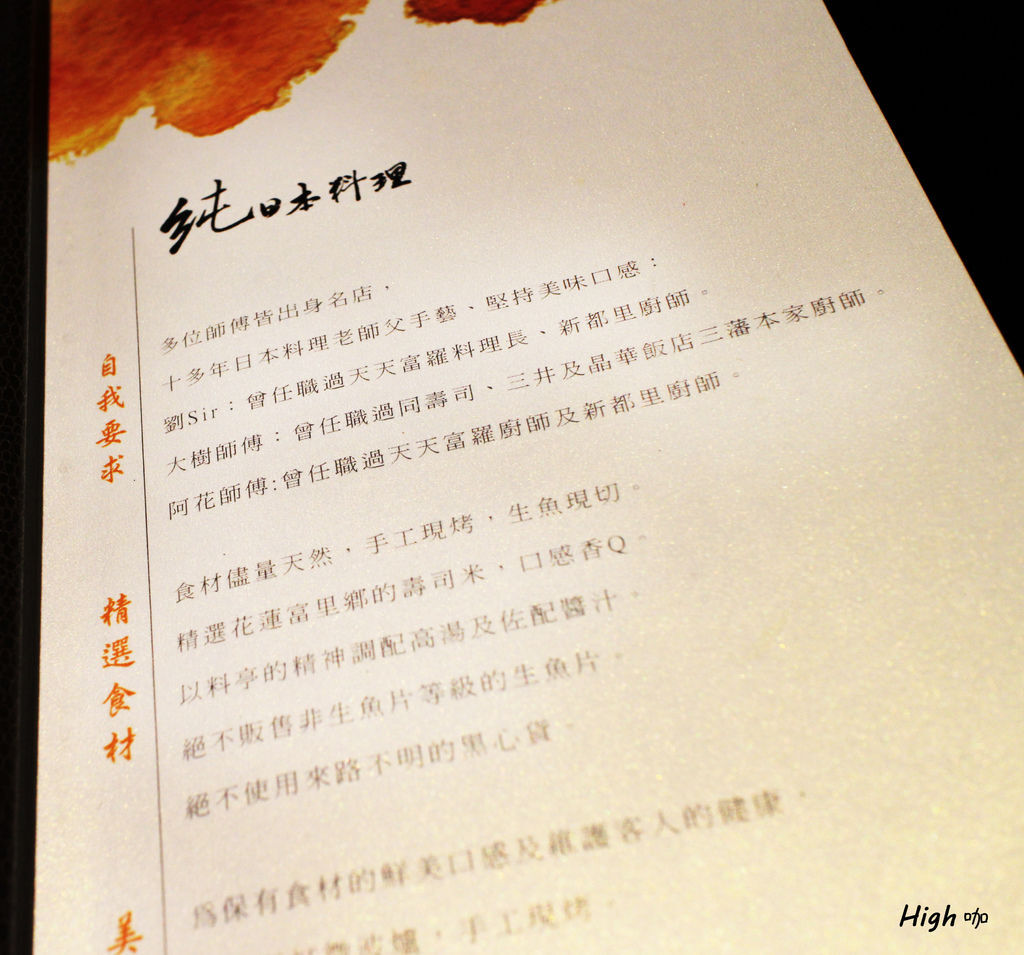 純日本料理
自我要求
多位師傅皆出身名店，
十多年日本料理老師父手藝、堅持美味口感：
劉Sir：曾任職過天天富羅料理長、新都里廚師。
大樹師傅：曾任職過同壽司、三井及晶華飯店三藩本家廚師。
阿花師傅:曾任職過天天富羅廚師及新都里廚師。
精選食材
食材儘量天然，手工現烤，生魚現切。
精選花蓮富里鄉的壽司米，口感香Q。
以料亭的精神調配高湯及佐配醬汁。
絕不販售非生魚片等級的生魚片。
絕不使用來路不明的黑心貨。
美
為保有食材的鮮美口感及維護客人的健康，
微波爐，手工現烤，
High 咖